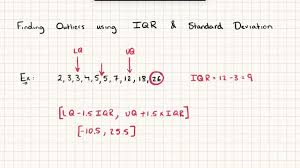 Finding Outliers using IQR & Standard Deviation
LQ UQ
Ex: 2, 3, 3, 4, 5, 5, 7, 12, 18, 26 IQR = 12 - 3 = 9
[LQ - 1.5 IQR, UQ + 1.5 x IQR]
[-10.5, 25.5]